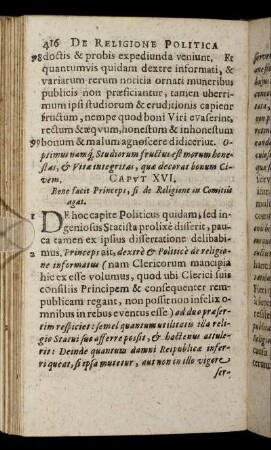 416 DE RELIGIONE POLITICA
98 doctis & probis expediunda veniunt. Et
quantumvis quidam dextre informati, &
variarum rerum notitia ornati muneribus
publicis non præficiantur, tamen uberri-
mum ipsi studiorum & eruditionis capient
fructum, nempe quod boni Viri evaserint,
rectum & æquum, honestum & inhonestum
99 bonum & malum agnoscere didicerint. O-
ptimus namq; Studiorum fructus est morum hone-
stas, & Vitæ integritas, qua decorat bonum Ci-
vem.
CAPUT XVI.
Bene facit Princeps, si de Religione in Comitiis
agat.
1 DE hoc capite Politicus quidam, sed in-
geniosus Statista prolixè disserit, pau-
ca tamen ex ipsius dissertatione delibabi-
2 mus, Princeps ait, dextrè & Politicè de religio-
ne informatus (nam Clericorum mancipia
hic ex esse volumus, quod ubi Clerici suis
consiliis Principem & consequenter rem-
publicam regant, non possit non infelix o-
mnibus in rebus eventus esse) ad duo præser-
tim respiciet: semel quantum utilitatis illa reli-
gio Statui suo afferre possit, & hactenus attule-
rit: Deinde quantum damni Reipublicæ infer-
ri queat, si ipsa mutetur, aut non in illo vigore
ser-